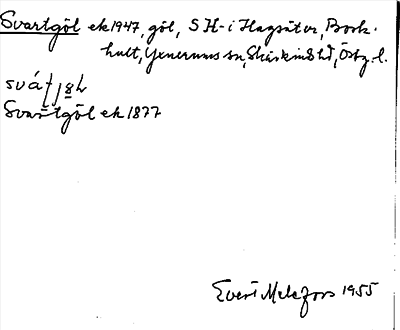 Svartgöl ek 1947, göl, S H-i Hagsäter, Bork-
hult, Yxnerums sn, Skärkinds hd, Östg. l.
Svartgöl ek 1877
Evert Melefors 1955